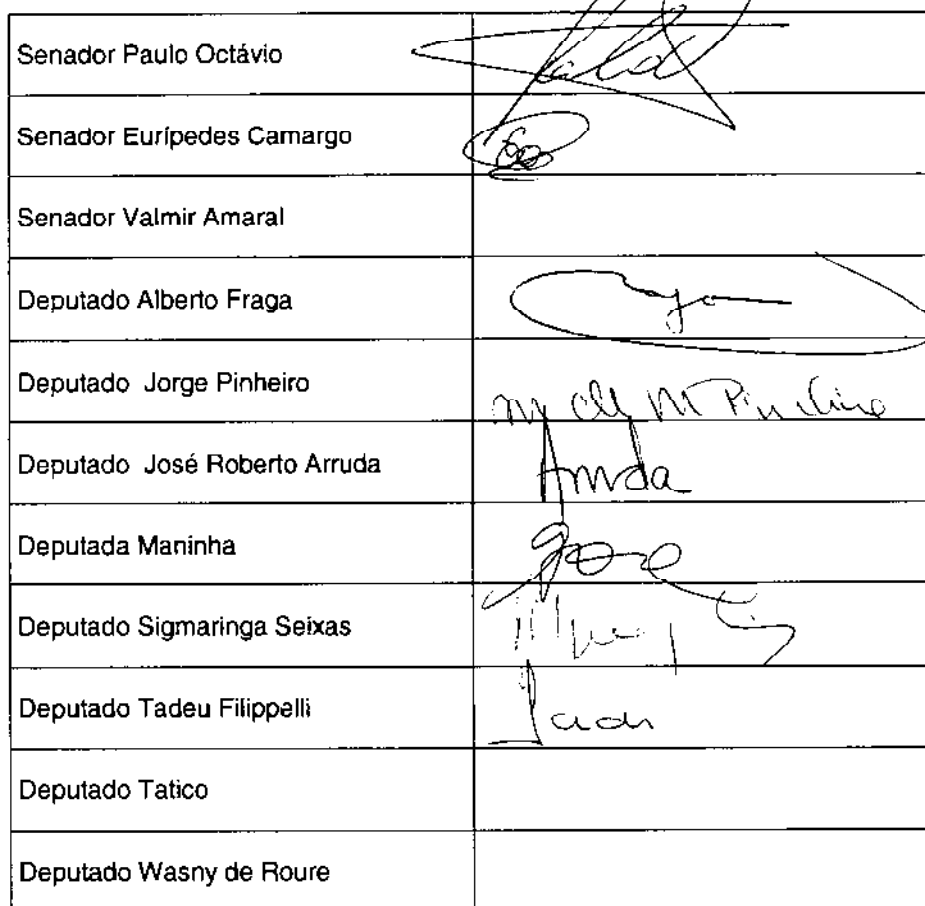 Senador Paulo Octávio
Senador Eurípedes Camargo
Senador Valmir Amaral
Deputado Alberto Fraga
Deputado Jorge Pinheiro
Deputado José Roberto Arruda
Arruda
Deputada Maninha
Deputado Sigmaringa Seixas
Deputado Tadeu Filippelli
Deputado Tatico
Deputado Wasny de Roure